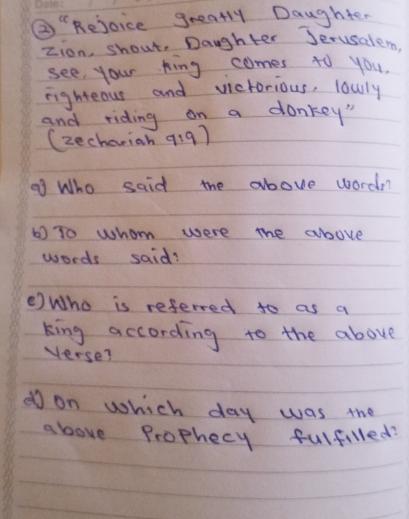 Date:
② "Rejoice greatly Daughter
Zion, shout, Daughter Jerusalem,
see, your king comes to you,
righteous and victorious, lowly
and riding on a donkey"
(Zechariah 9:9)
a) Who said the above words?
b) To whom were the above
words said?
c) Who is referred to as a
king according to the above
verse?
d) On which day was the
above Prophecy fulfilled?